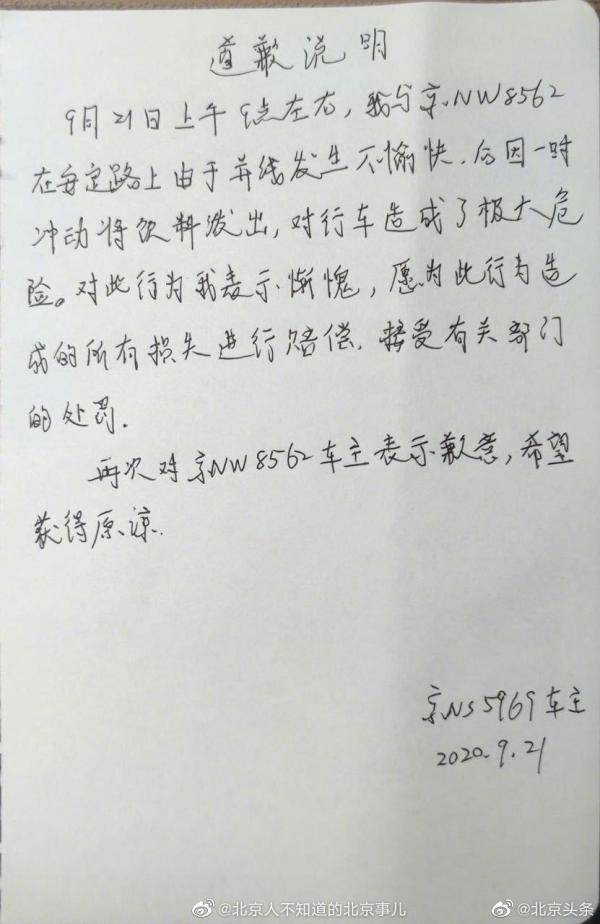 道歉说明
9月21日上午9点左右，我与京NW8562
在安定路上由于并线发生不愉快.后因一时
冲动将饮料泼出，对行车造成了极大危
险。对此行为我表示惭愧，愿为此行为造
成的所有损失进行赔偿.接受有关部门
的处罚.
再次对京NW8562车主表示歉意，希望
获得原谅.
京NS5969车主
2020.9.21
@北京人不知道的北京事儿
@北京头条